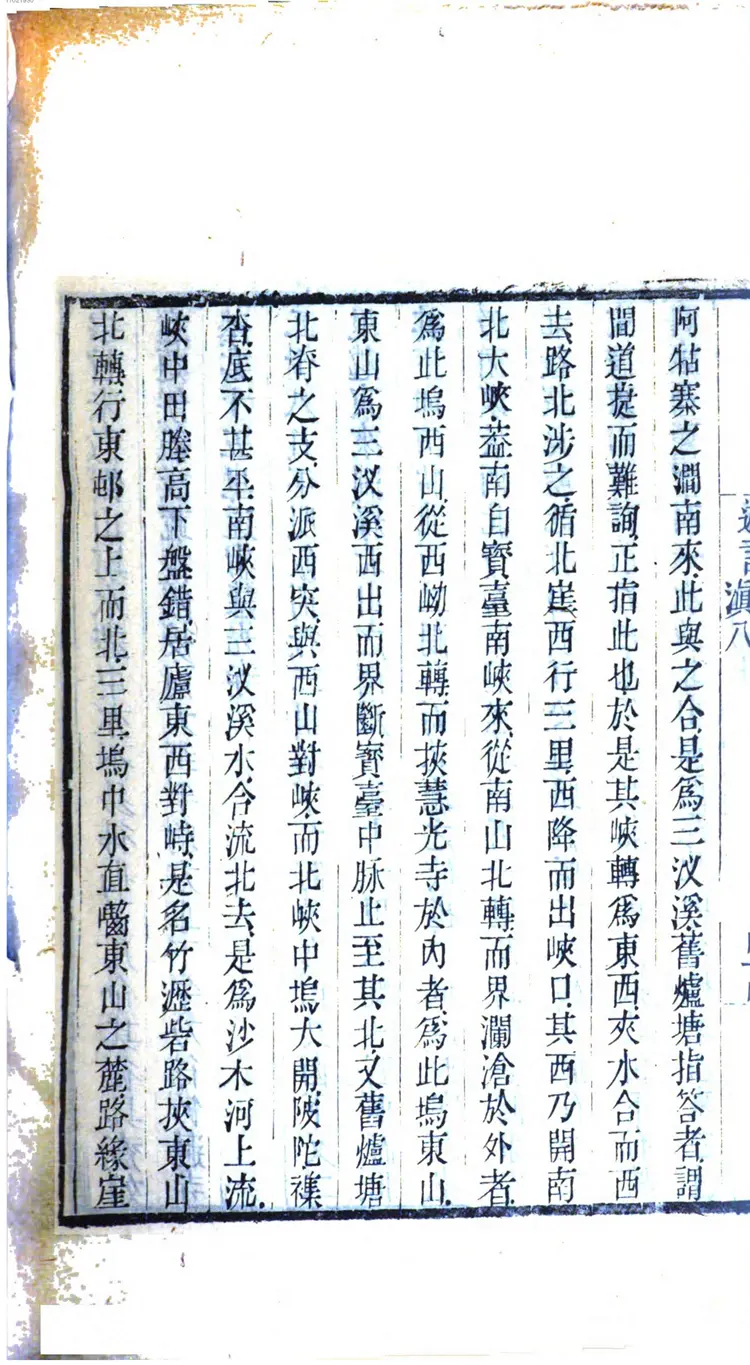 阿牯寨之澗南來此與之合是爲三汊溪舊爐塘指答者謂
間道捷而難詢正指此也於是其峽轉爲東西夾水合而西
去路北涉之循北崖西行三里西降而出峽口其西乃開南
北大峽葢南自寶臺南峽來從南山北轉而界瀾滄於外者
爲此塢西山從西坳北轉而挾慧光寺於內者爲此塢東山
東山爲三汊溪西出而界斷寶臺中脉止至其北又舊爐塘
北脊之支分派西突與西山對峽而北峽中塢大開陂陀襍
沓底不甚平南峽與三汊溪水合流北去是爲沙木河上流
峽中田塍高下盤錯居廬東西對峙是名竹瀝砦路挾東山
北轉行東邨之上而北三里塢中水直嚙東山之麓路緣崖